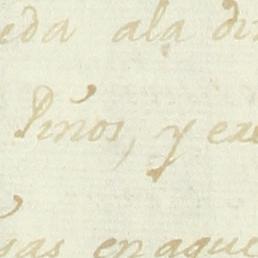 eda ala di
Pinos, y exe
sas en aque